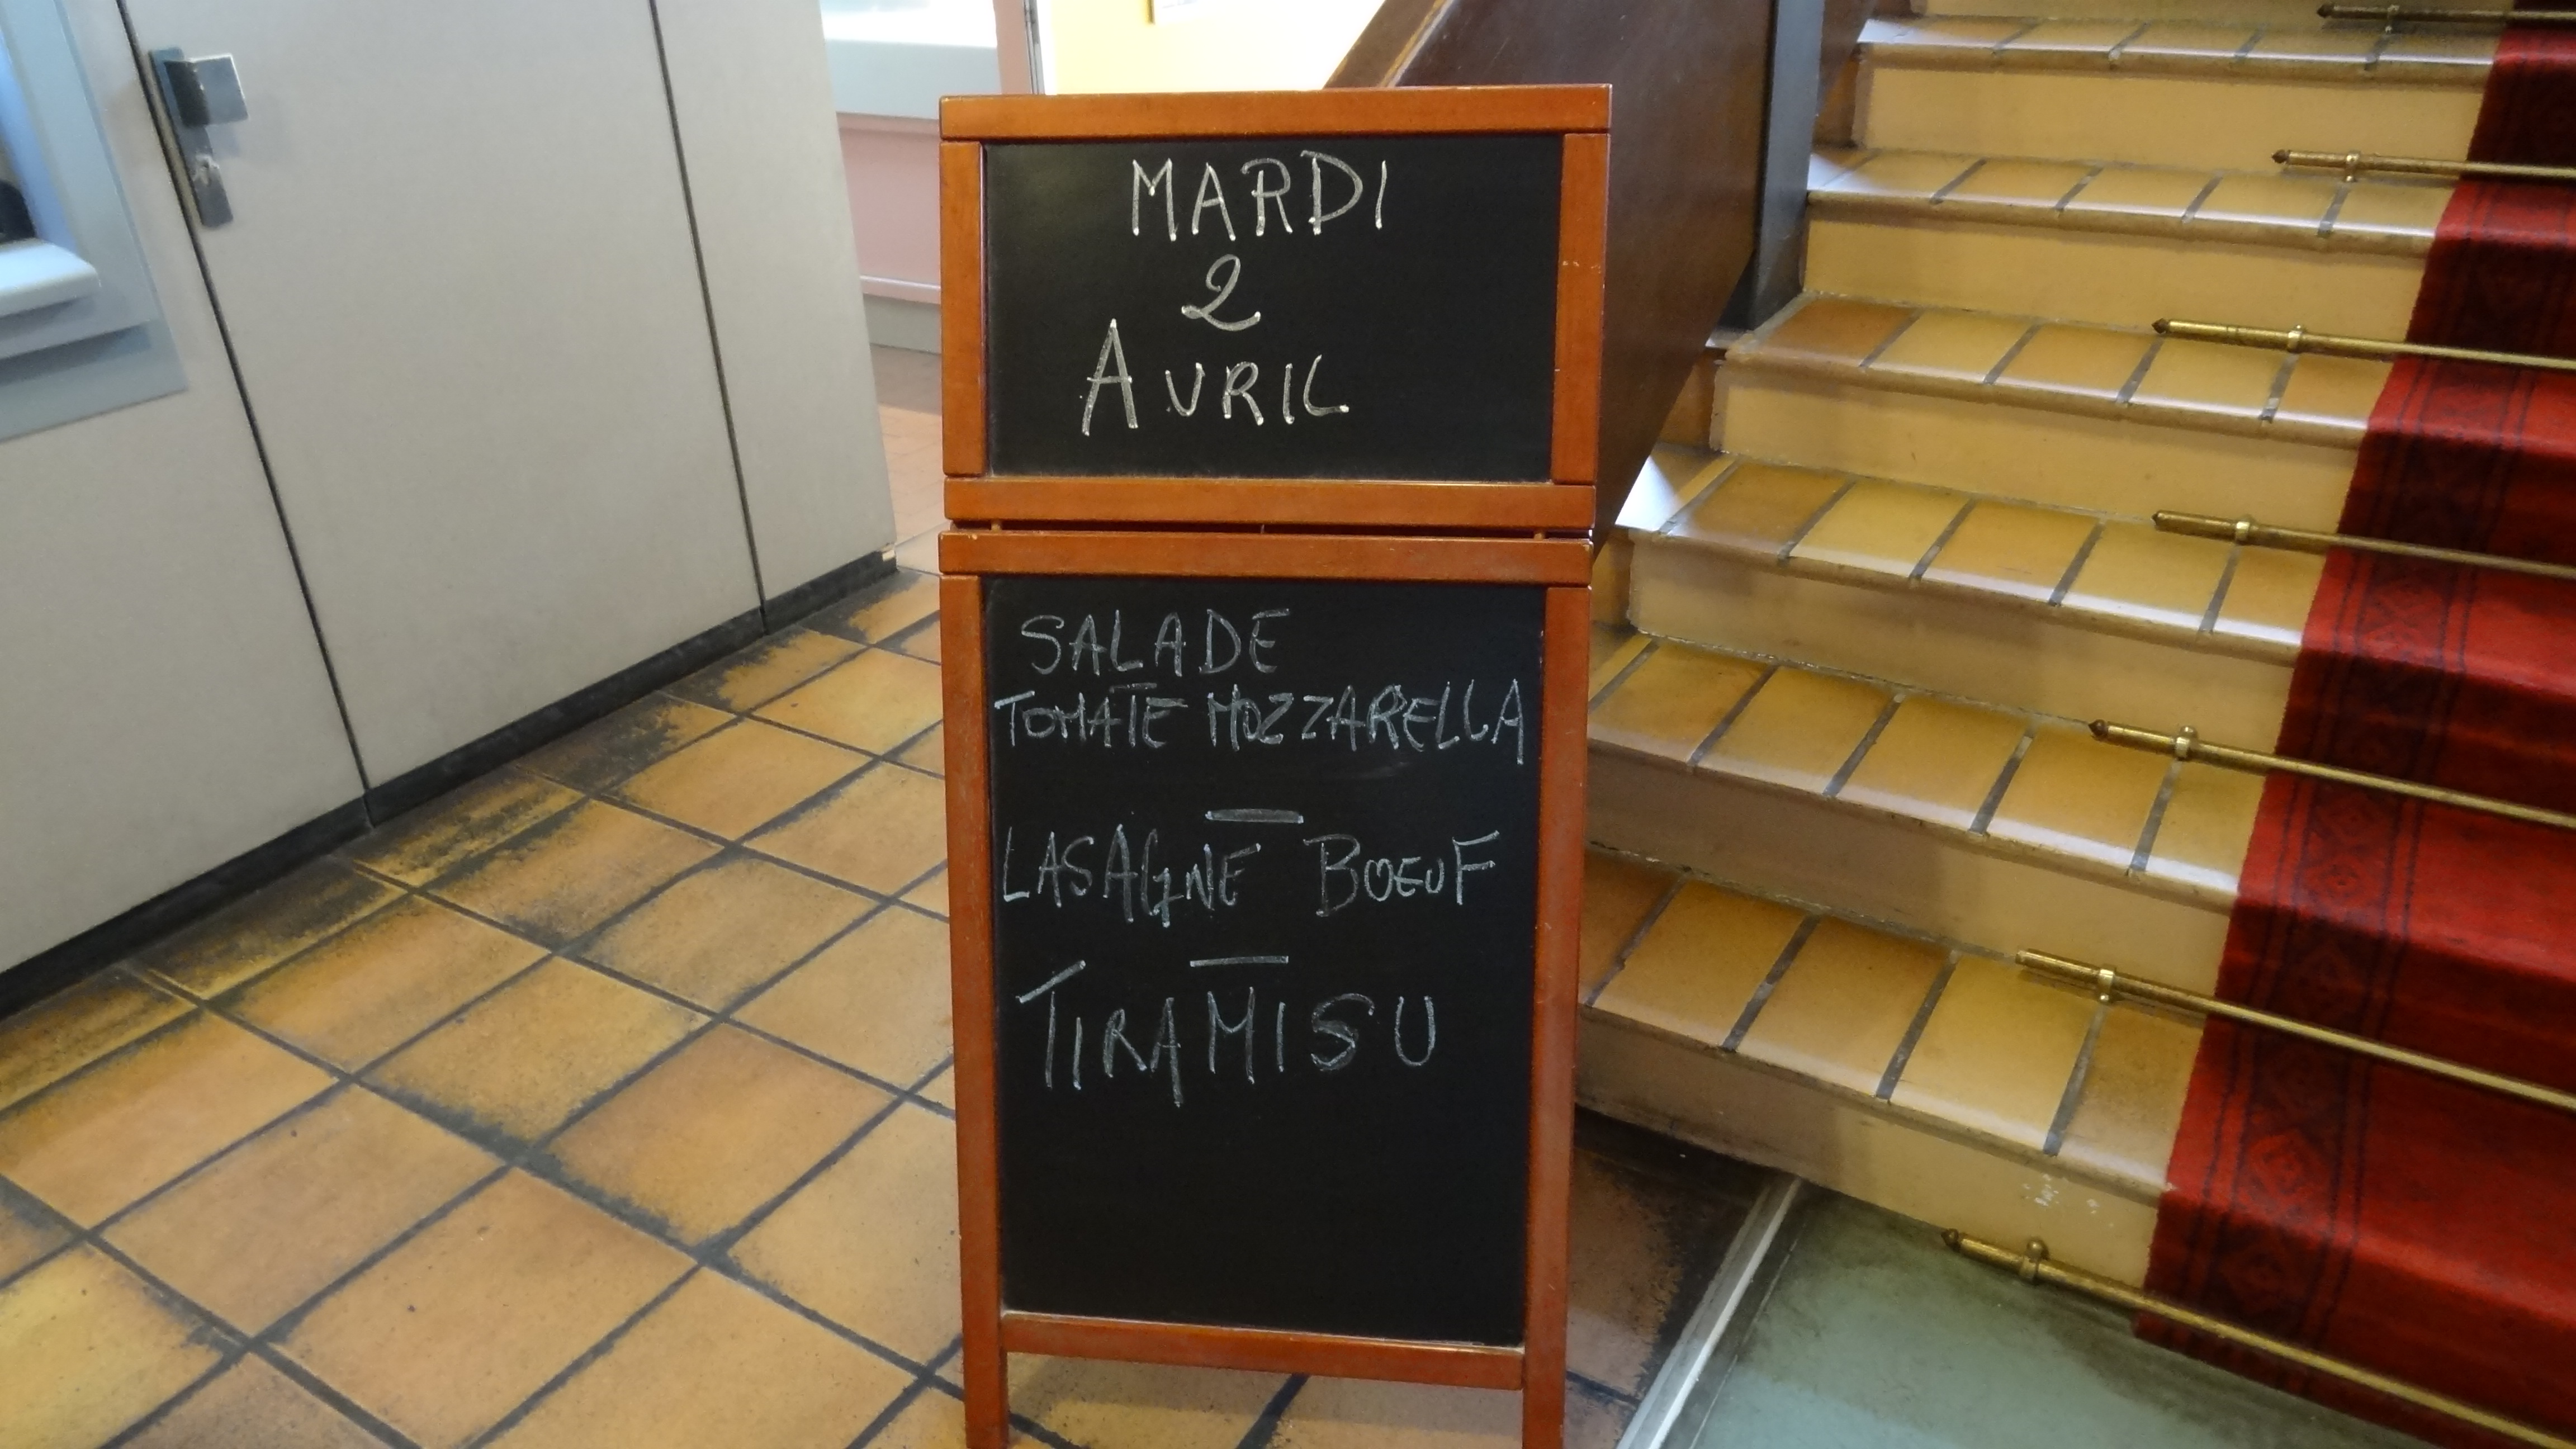 MARDI
2
AVRIL
SALADE
TOMATE MOZZARELLA
—
LASAGNE BOEUF
—
TIRAMISU